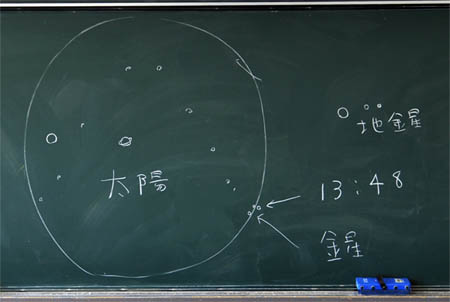 地金星
太陽
13:48
金星